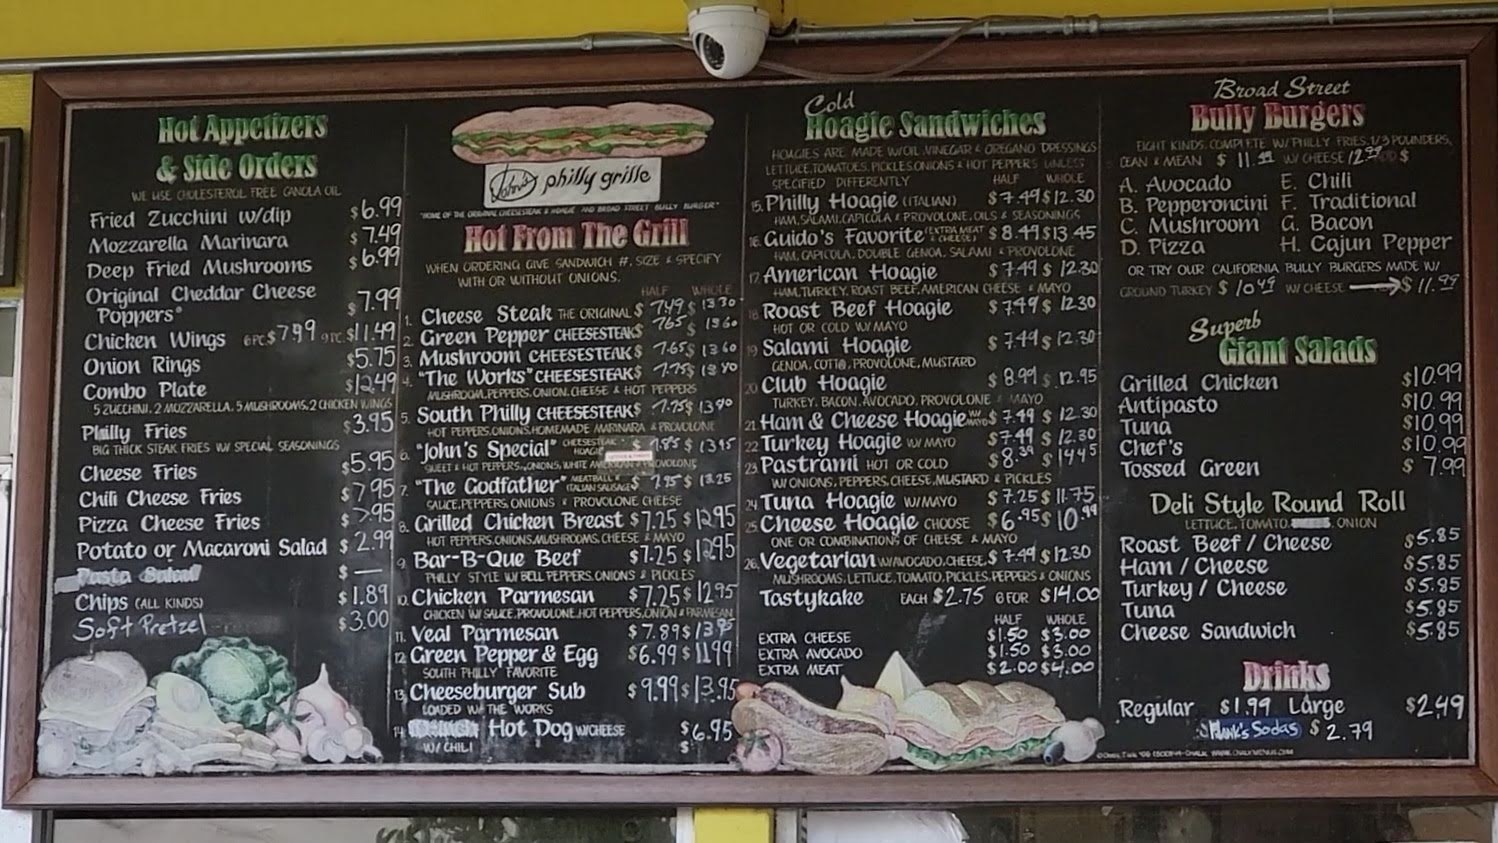 Hot Appetizers
& Side Orders
WE USE CHOLESTEROL FREE CANOLA OIL
Fried Zucchini w/dip $6.99
Mozzarella Marinara $7.49
Deep Fried Mushrooms $6.99
Original Cheddar Cheese
Poppers" $7.99
Chicken Wings 6PC $7.99 9PC. $11.49
Onion Rings $5.75
Combo Plate $12.49
5 ZUCCHINI, 2 MOZZARELLA, 5 MUSHROOMS, 2 CHICKEN WINGS
Philly Fries $3.95
BIG THICK STEAK FRIES W/ SPECIAL SEASONINGS
Cheese Fries $5.95
Chili Cheese Fries $7.95
Pizza Cheese Fries $7.95
Potato or Macaroni Salad $2.99
Pasta Salad $ —
Chips (ALL KINDS) $1.89
Soft Pretzel $3.00
John's philly grille
"HOME OF THE ORIGINAL CHEESESTEAK & HOAGIE AND BROAD STREET BULLY BURGER"
Hot From The Grill
WHEN ORDERING GIVE SANDWICH #, SIZE & SPECIFY
WITH OR WITHOUT ONIONS.
HALF WHOLE
1. Cheese Steak THE ORIGINAL $7.49 $13.30
2. Green Pepper CHEESESTEAK $7.65 $13.60
3. Mushroom CHEESESTEAK $7.65 $13.60
4. "The Works" CHEESESTEAK $7.75 $13.90
MUSHROOM, PEPPERS, ONION, CHEESE & HOT PEPPERS
5. South Philly CHEESESTEAK $7.75 $13.90
HOT PEPPERS, ONIONS, HOMEMADE MARINARA & PROVOLONE
6. "John's Special" CHEESESTEAK HOAGIE $7.85 $13.95
SWEET & HOT PEPPERS, ONIONS, WHITE AMERICAN & PROVOLONE
7. "The Godfather" MEATBALL & ITALIAN SAUSAGE $7.95 $13.25
SAUCE, PEPPERS, ONIONS & PROVOLONE CHEESE
8. Grilled Chicken Breast $7.25 $12.95
HOT PEPPERS, ONIONS, MUSHROOMS, CHEESE & MAYO
9. Bar-B-Que Beef $7.25 $12.95
PHILLY STYLE W/ BELL PEPPERS, ONIONS & PICKLES
10. Chicken Parmesan $7.25 $12.95
CHICKEN W/ SAUCE, PROVOLONE, HOT PEPPERS, ONION & PARMESAN
11. Veal Parmesan $7.89 $13.95
12. Green Pepper & Egg $6.99 $11.99
SOUTH PHILLY FAVORITE
13. Cheeseburger Sub $9.99 $13.95
LOADED W/ THE WORKS
14. Hot Dog W/CHEESE $6.95
W/ CHILI $
Cold
Hoagie Sandwiches
HOAGIES ARE MADE W/OIL, VINEGAR & OREGANO DRESSINGS
LETTUCE, TOMATOES, PICKLES, ONIONS & HOT PEPPERS UNLESS
SPECIFIED DIFFERENTLY HALF WHOLE
15. Philly Hoagie (ITALIAN) $7.49 $12.30
HAM, SALAMI, CAPICOLA & PROVOLONE, OILS & SEASONINGS
16. Guido's Favorite (EXTRA MEAT & CHEESE) $8.49 $13.45
HAM, CAPICOLA, DOUBLE GENOA, SALAMI & PROVOLONE
17. American Hoagie $7.49 $12.30
HAM, TURKEY, ROAST BEEF, AMERICAN CHEESE & MAYO
18. Roast Beef Hoagie $7.49 $12.30
HOT OR COLD W/ MAYO
19. Salami Hoagie $7.49 $12.30
GENOA, COTTO, PROVOLONE, MUSTARD
20. Club Hoagie $8.99 $12.95
TURKEY, BACON, AVOCADO, PROVOLONE & MAYO
21. Ham & Cheese Hoagie W/ MAYO $7.49 $12.30
22. Turkey Hoagie W/ MAYO $7.49 $12.30
23. Pastrami HOT OR COLD $8.39 $14.45
W/ ONIONS, PEPPERS, CHEESE, MUSTARD & PICKLES
24. Tuna Hoagie W/MAYO $7.25 $11.75
25. Cheese Hoagie CHOOSE $6.95 $10.99
ONE OR COMBINATIONS OF CHEESE & MAYO
26. Vegetarian W/AVOCADO, CHEESE, $7.49 $12.30
MUSHROOMS, LETTUCE, TOMATO, PICKLES, PEPPERS & ONIONS
Tastykake EACH $2.75 6 FOR $14.00
HALF WHOLE
EXTRA CHEESE $1.50 $3.00
EXTRA AVOCADO $1.50 $3.00
EXTRA MEAT $2.00 $4.00
Broad Street
Bully Burgers
EIGHT KINDS. COMPLETE W/ PHILLY FRIES. 1/3 POUNDERS,
LEAN & MEAN $11.99 W/ CHEESE 12.99 $
A. Avocado E. Chili
B. Pepperoncini F. Traditional
C. Mushroom G. Bacon
D. Pizza H. Cajun Pepper
OR TRY OUR CALIFORNIA BULLY BURGERS MADE W/
GROUND TURKEY $10.49 W/ CHEESE → $11.99
Superb
Giant Salads
Grilled Chicken $10.99
Antipasto $10.99
Tuna $10.99
Chef's $10.99
Tossed Green $7.99
Deli Style Round Roll
LETTUCE, TOMATO, ONION
Roast Beef / Cheese $5.85
Ham / Cheese $5.85
Turkey / Cheese $5.85
Tuna $5.85
Cheese Sandwich $5.85
Drinks
Regular $1.99 Large $2.49
Hank's Sodas $2.79